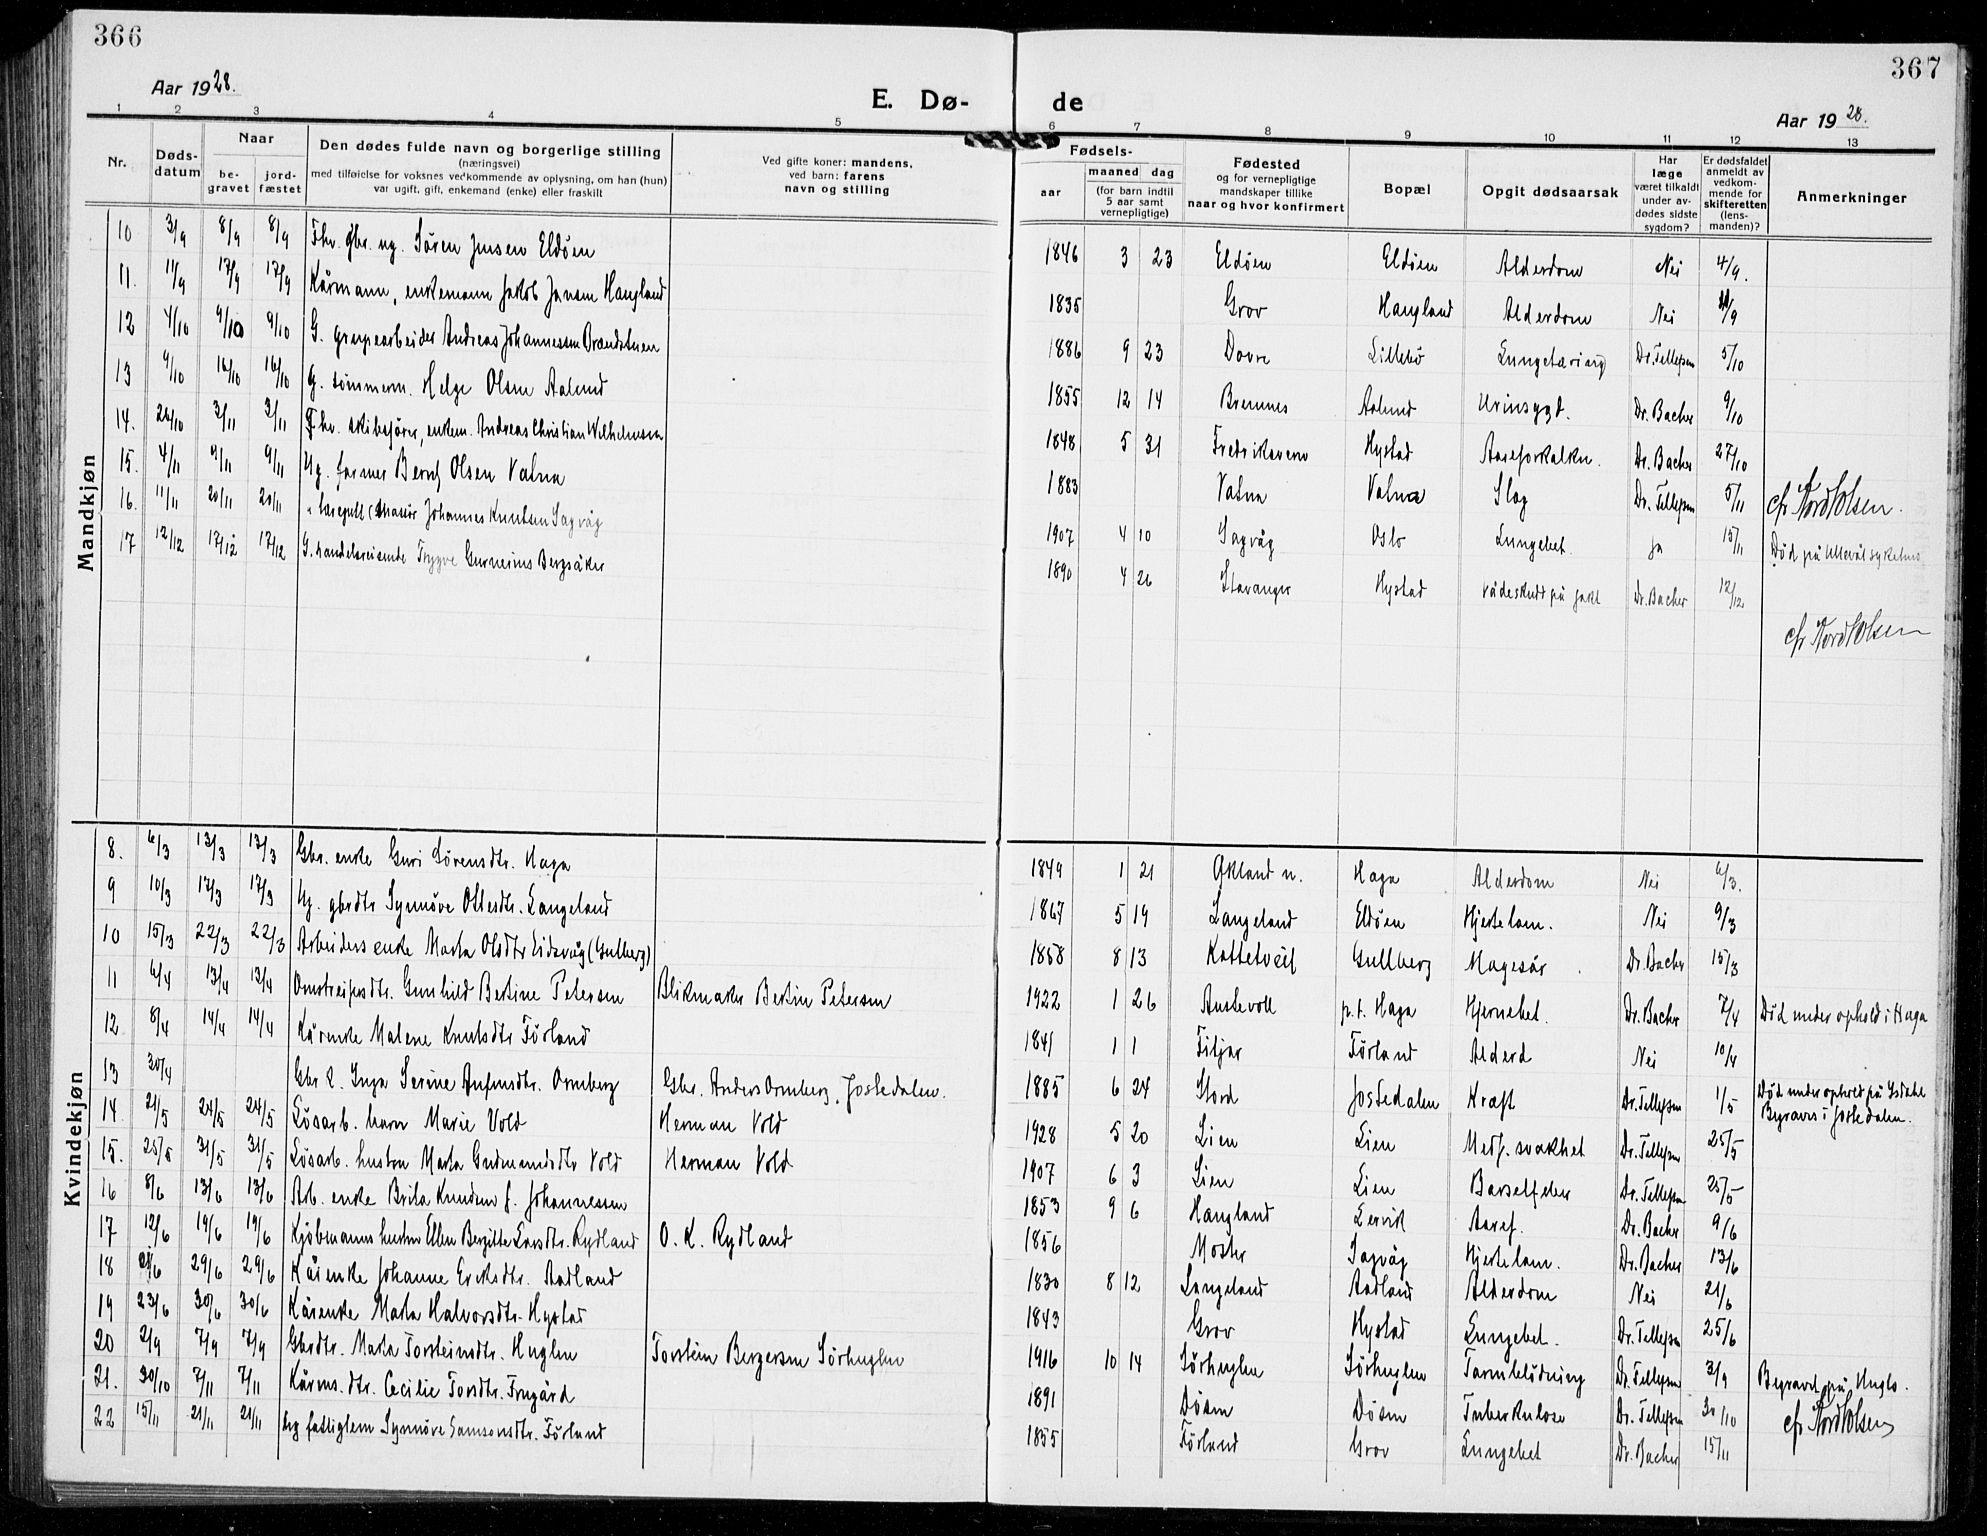 366
367
Aar 1928.
E. Dø-
de
Aar 1928.
1 2 3 4 5 6 7 8 9 10 11 12 13
Nr.
Døds-
datum
Naar
be-
gravet
jord-
fæstet
Den dødes fulde navn og borgerlige stilling
(næringsvei)
med tilføielse for voksnes vedkommende av oplysning, om han (hun)
var ugift, gift, enkemand (enke) eller fraskilt
Ved gifte koner: mandens,
ved barn: farens
navn og stilling
Fødsels-
aar
maaned dag
(for barn indtil
5 aar samt
vernepligtige)
Fødested
og for vernepligtige
mandskaper tillike
naar og hvor konfirmert
Bopæl
Opgit dødsaarsak
Har
læge
været tilkaldt
under av-
dødes sidste
sygdom?
Er dødsfaldet
anmeldt av
vedkom-
mende for
skifteretten
(lens-
manden)?
Anmerkninger
Mandkjøn
10 3/9 8/9 8/9 Fhv. gbr. ug. Sören Jensen Eldöen 1846 3 23 Eldöen Eldöen Alderdom Nei 4/9.
11. 11/9 17/9 17/9 Kårmann, enkemann Jakob Jansen Haugland 1835 Grov Haugland Alderdom Nei 11/9
12 4/10 9/10 9/10 G. grupearbeider Andreas Johannessen Brandstuen 1886 9 23 Dovre Lillebö Lungetæring Dr. Tellefsen 5/10
13 9/10 16/10 16/10 G. tömmerm. Helge Olsen Aalund 1855 12 14 Bremnes Aalund Urinsygd. Dr. Bacher 9/10
14. 26/10 3/11 3/11 Fhv. skibsförer, enkem. Andreas Christian Wilhelmsen 1848 5 31 Fredriksvern Hystad Aareforkalkn. Dr. Bacher 27/10
15. 4/11 9/11 9/11 Ug. farmer Bernt Olsen Vatna 1883 Vatna Vatna Slag Dr. Tellefsen 5/11 cfr Nord Olsen.
16. 11/11 20/11 20/11 Johannes Knutsen Sagvåg 1907 4 10 Sagvåg Oslo Lungebet. ja 15/11 Död på Ullevål sykehus
17 12/12 17/12 17/12 G. handelsreisende Trygve Bergsåker 1890 4 26 Stavanger Hystad Vådeskudt på jakt Dr. Bacher 12/12
cfr Nord Olsen
Kvindekjøn
8. 6/3 13/3 13/3 Gbr. enke Guri Sörensdtr. Haga 1849 1 21 Økland n. Haga Alderdom Nei 6/3.
9 10/3 17/3 17/3 Ug. gbrdtr Synnöve Ottesdtr. Langeland 1867 5 19 Langeland Eldöen Hjertelam. Nei 9/3
10 15/3 22/3 22/3 Arbeiders enke Marta Olsdtr Eidsvåg (Gulberg) 1858 8 13 Kattetveit Gullberg Magesår Dr. Bacher 15/3
11 6/4 13/4 13/4 Omstreiferdtr. Gunhild Bertine Petersen Blikmaker Bertin Petersen 1922 1 26 Austevoll p.t. Haga Hjernebet. Dr. Bacher 7/4 Död under ophold i Haga
12 8/4 14/4 14/4 Kårenke Malene Knutsdtr Förland 1841 1 1 Fitjar Förland Alderd Nei 10/4
13 30/4 Gbr. k. Inga Serine Aufinsdtr. Ornberg Gbr. Anders Ornberg, Jostedalen. 1885 6 24 Stord Jostedalen Kræft Dr. Tellefsen 1/5 Död under ophold på
Begraves i Jostedalen.
14. 21/5 24/5 24/5 Lösarb. barn Marie Vold Herman Vold 1928 5 20 Lien Lien Medf. svakhet Dr. Tellefsen 25/5
15. 25/5 31/5 31/5 Lösarb. hustru Marta Gudmundsdtr Vold Herman Vold 1907 6 3 Lien Lien Barselfeber Dr. Tellefsen 25/5
16 8/6 13/6 13/6 Arb. enke Brita Knudsen f. Johannessen 1853 9 6 Haugland Lervik Aaref. Dr. Bacher 9/6
17 12/6 19/6 19/6 Kjöbmanns hustru Ellen Bergitte Larsdtr. Rydland O. K. Rydland 1856 Moster Sagvåg Hjertelam. Dr. Bacher 13/6
18 21/6 29/6 29/6 Kårenke Johanne Eriksdtr. Aadland 1830 8 12 Langeland Aadland Alderdom Nei 21/6
19 23/6 30/6 30/6 Kårenke Marta Halvorsdtr. Hystad 1843 Grov Hystad Lungebet. Dr. Tellefsen 25/6
20 2/9 7/9 7/9 Gbrdtr. Marta Torsteinsdtr. Huglen Torstein Bergersen Sörhuglen 1916 10 14 Sörhuglen Sörhuglen Tarmblödning Dr. Tellefsen 3/9 Begravet på Huglo.
21. 30/10 7/11 7/11 Kårms. dtr. Cecilie Torsdtr. Frugård 1891 Dösen Dösen Tuberkulose Dr. Tellefsen 30/10 cfr Nord Olsen
22 15/11 21/11 21/11 Ug fattiglem Synnöve Samsonsdtr. Förland 1855 Förland Grov Lungebet Dr. Bacher 15/11